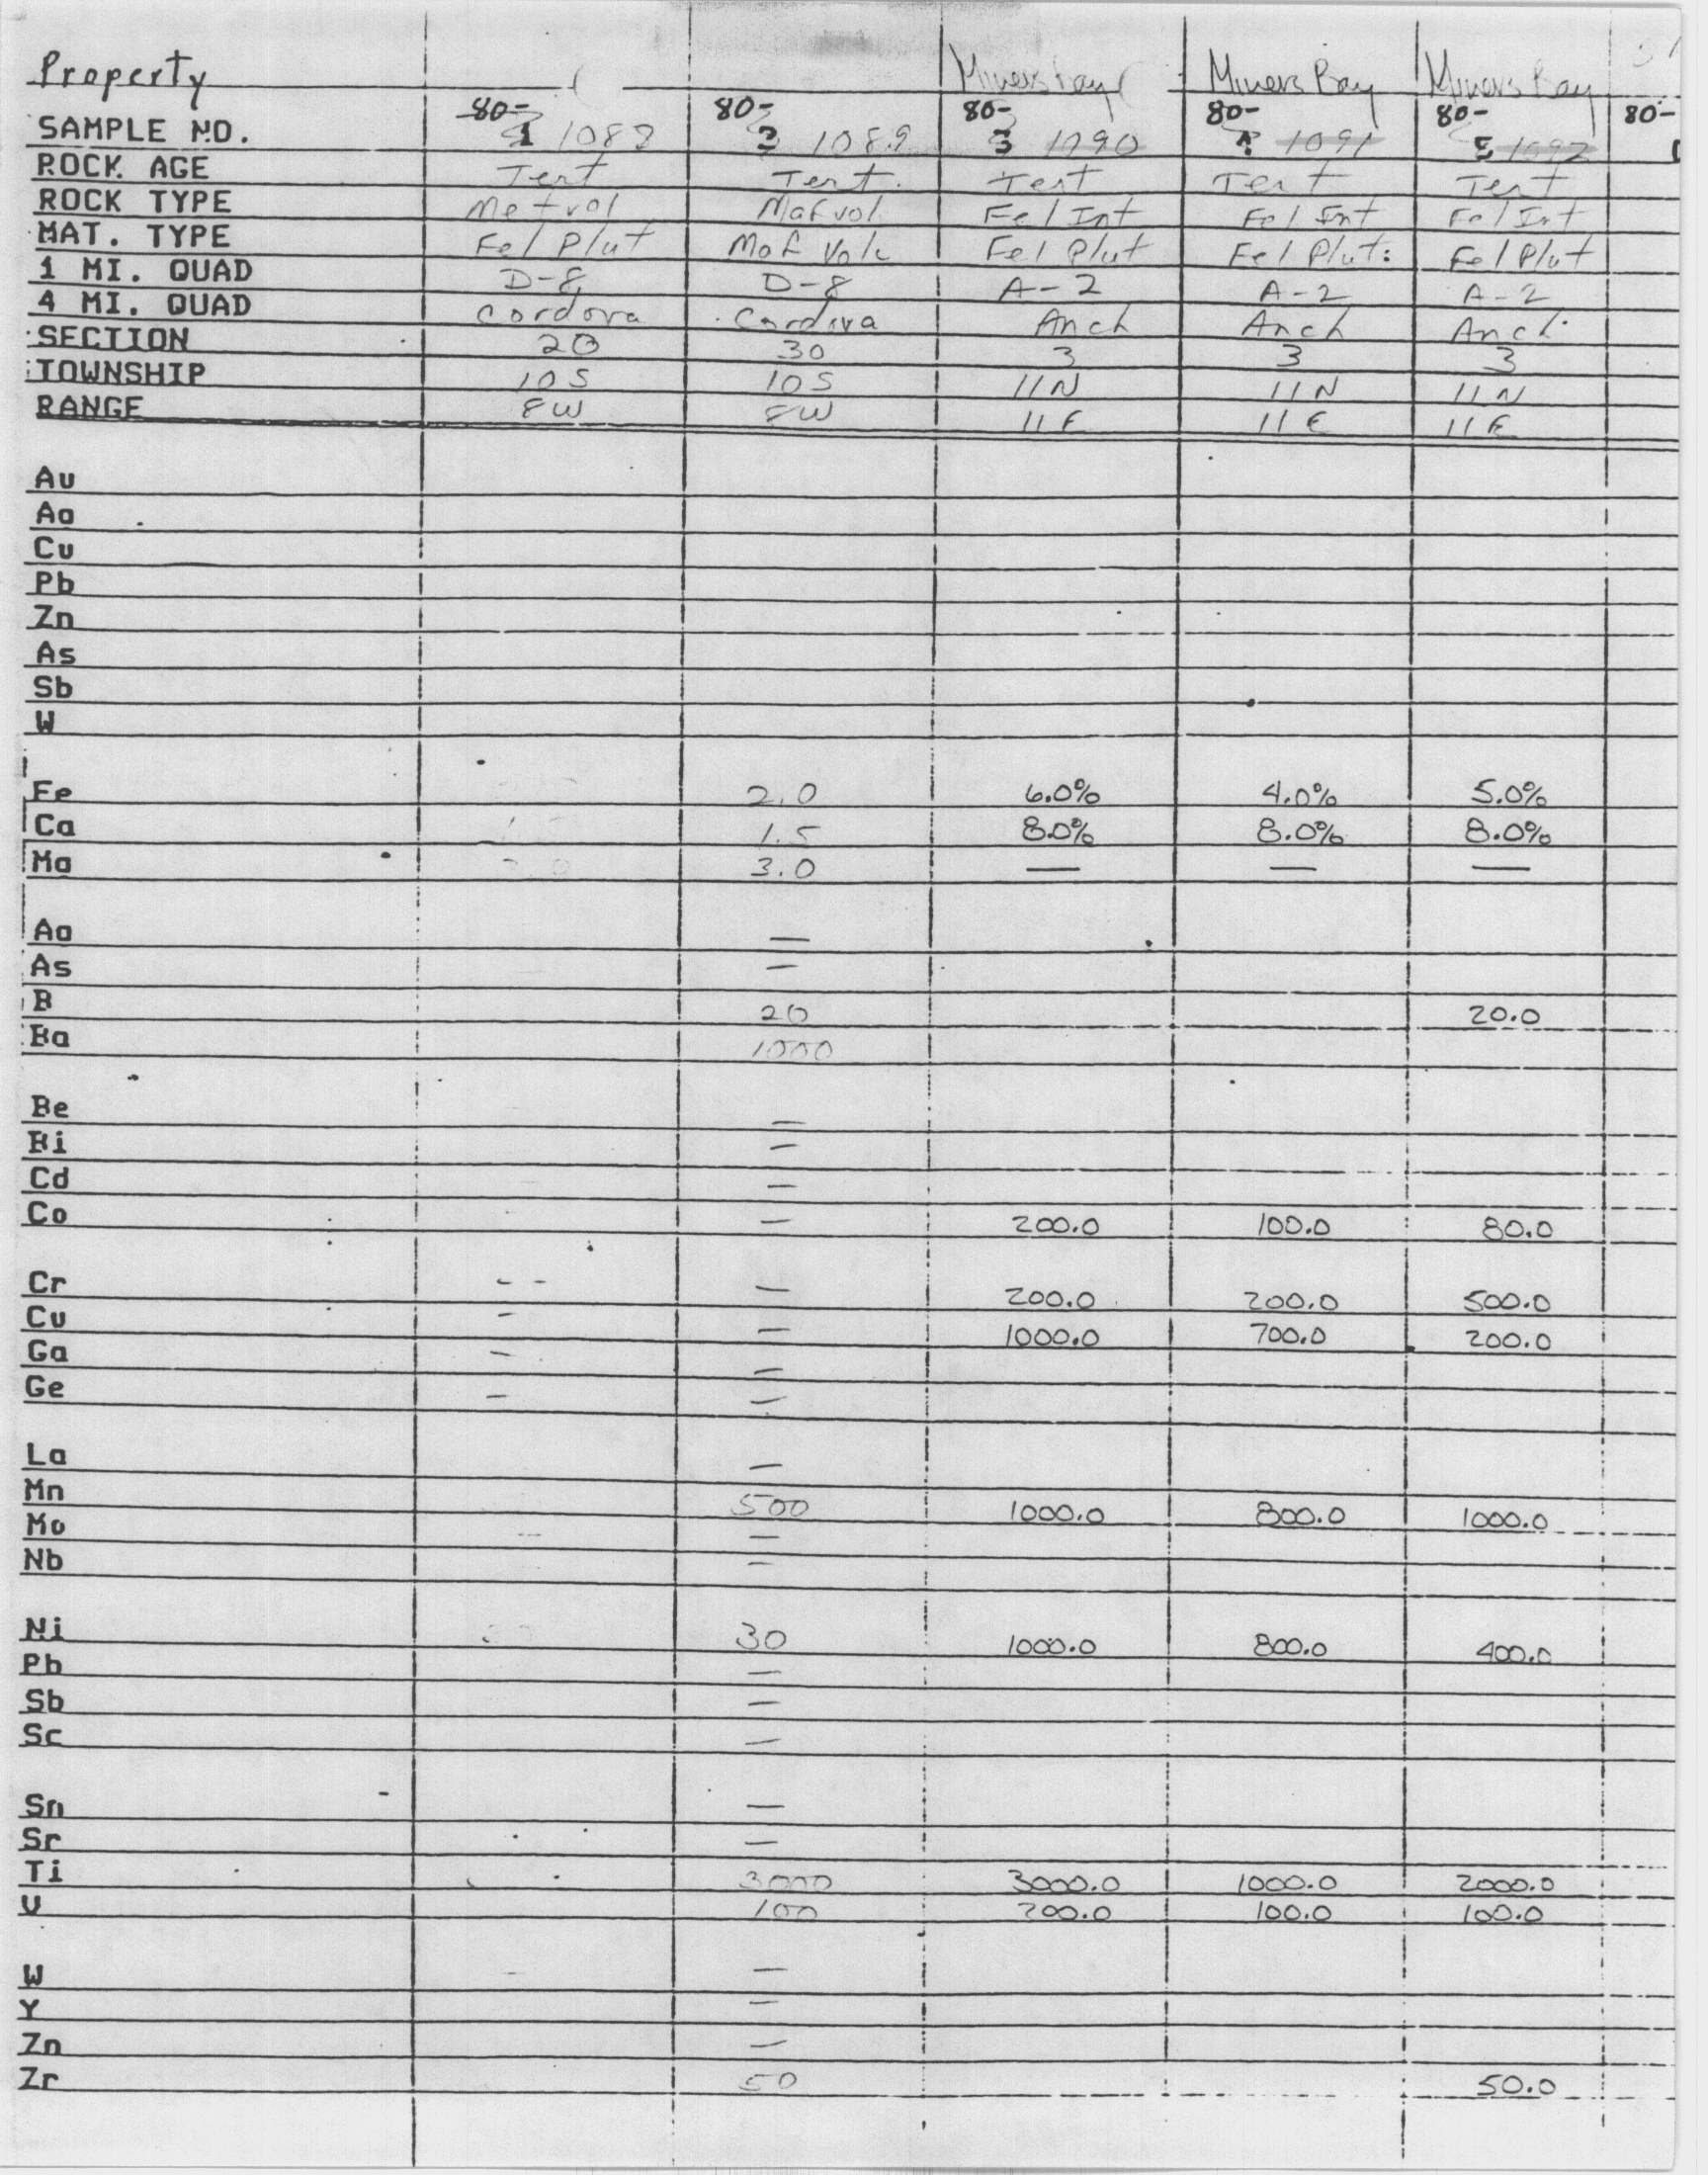 Property Miners Bay Miners Bay Miners Bay
80- 80- 80- 80- 80- 80-
SAMPLE NO. 1 1088 2 1089 3 1090 4 1091 5 1092
ROCK AGE Tert Tert. Tert Tert Tert
ROCK TYPE Metvol Mafvol Fel Int Fel Int Fel Int
MAT. TYPE Fel Plut Maf Volc Fel Plut Fel Plut. Fel Plut
1 MI. QUAD D-8 D-8 A-2 A-2 A-2
4 MI. QUAD Cordova Cordova Anch Anch Anch
SECTION 20 30 3 3 3
TOWNSHIP 10S 10S 11N 11N 11N
RANGE 8W 8W 11E 11E 11E
Au
Ag
Cu
Pb
Zn
As
Sb
W
Fe 2.0 6.0% 4.0% 5.0%
Ca 1.5 8.0% 8.0% 8.0%
Mg 3.0 — — —
Ag —
As —
B 20 20.0
Ba 1000
Be —
Bi —
Cd —
Co — 200.0 100.0 80.0
Cr - - — 200.0 200.0 500.0
Cu — — 1000.0 700.0 200.0
Ga — —
Ge — —
La —
Mn 500 1000.0 800.0 1000.0
Mo —
Nb —
Ni 30 1000.0 800.0 400.0
Pb —
Sb —
Sc —
Sn —
Sr —
Ti 3000 3000.0 1000.0 2000.0
V 100 200.0 100.0 100.0
W —
Y —
Zn —
Zr 50 50.0